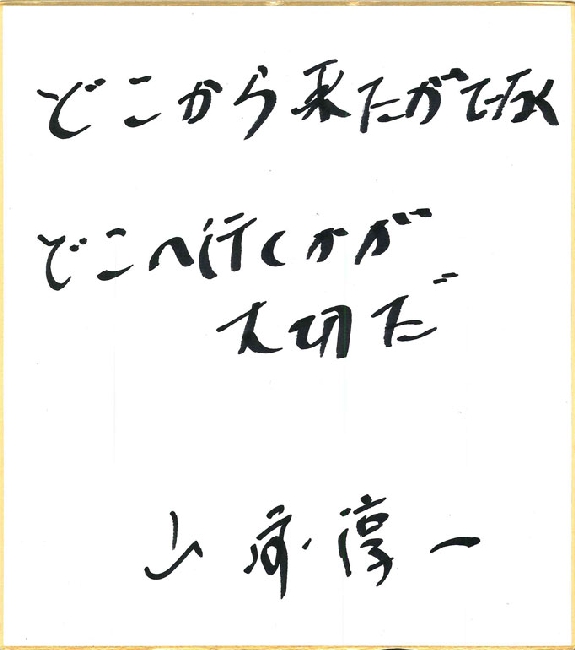 どこから来たがでなく
どこへ行くかが
大切だ
山 淳一